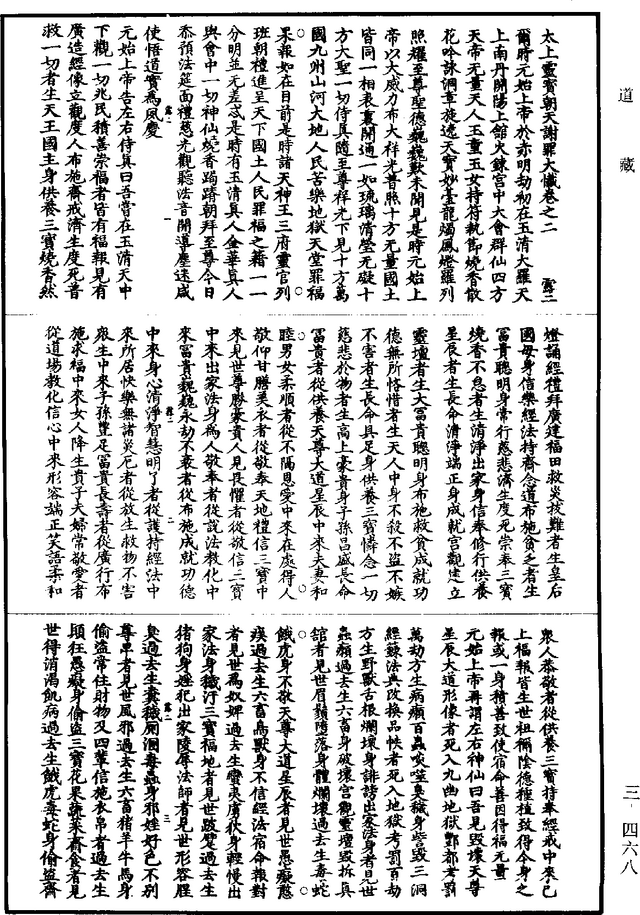 道藏
太上靈寶朝天謝罪大懺卷之二 露二
爾時元始上帝於赤明劫初在玉清大羅天
上南丹開陽上館火鍊宮中大會群仙四方
天帝無量天人玉童玉女持符執節燒香散
花吟詠洞章旋遶天寶妙臺龍燭鳳燈羅列
照耀至尊聖德巍巍歎未聞見是時元始上
帝以大威力布大祥光普照十方無量國土
皆同一相表裏開通一如琉璃清瑩無礙十
方大聖一切侍真隨至尊祥光下見十方萬
國九州山河大地人民苦樂地獄天堂罪福
果報如在目前是時諸天神王三府靈官列
班朝禮進呈天下國土人民罪福之籍一一
分明並無差忒是時有玉清真人金華真人
與會中一切神仙燒香躅踖朝拜至尊今日
忝預法筵面禮慈光觀聽法音開導塵迷咸
使悟道實為風慶
元始上帝告左右侍真曰吾嘗在玉清天中
下觀一切兆民積善崇福者皆有福報見有
廣造經像立觀度人布施齋戒濟生度死普
救一切者生天王國主身供養三寶燒香然
燈誦經禮拜廣建福田救災拔難者生皇后
國母身信樂經法持齋念道布施貧乏者生
冨貴聰明身常行慈悲濟生度死崇奉三寶
燒香不息者生清淨出家身信奉修行供養
星辰者生長命清淨端正身成就宮觀建立
靈壇者生大冨貴聰明身布施救貧成就功
德無所恡惜者生天人中身不殺不盜不嫉
不害者生長命具足身供養三寶憐念一切
慈悲於物者生高上豪貴身子孫昌盛長命
冨貴者從供養天尊大道星辰中來夫妻和
睦男女柔順者從不隔恩愛中來在處得人
敬仰甘膳美衣者從敬奉天地禮信三寶中
來見世尊勝豪貴人見畏懼者從敬信三寶
中來出家法身為人敬奉者從說法教化中
來冨貴巍巍永劫不衰者從布施成就功德
中來身心清淨智慧明了者從護持經法中
來所居快樂無諸災厄者從放生救物不害
眾生中來子孫豐足冨貴長壽者從廣行布
施求福中來女人降生貴子夫婦常敬愛者
從道場教化信心中來形容端正笑語柔和
眾人恭敬者從供養三寶持奉經戒中來已
上福報皆生世祖禰陰德種植致得今身之
報或一身積善致使宿命善因得福無量
元始上帝再謂左右神仙曰吾見毀壞天尊
星辰大道形像者死入九幽地獄酆都考罰
萬劫方生病癩百蟲唼噬臭穢身訾毀三洞
經籙法典改換品帙者死入地獄考罰百劫
方生野獸舌根爛壞身誹謗出家法身者見世
蟲癩過去生六畜身破壞宮觀靈壇毀拆真
舘者見世眉鬚墮落身體爛壞過去生毒蛇
餓虎身不敬天尊大道星辰者見世愚癡憃
瘼過去生六畜鳥獸身不信經法宿命報對
者見世為奴婢過去生蠻夷虜狄身輕慢出
家法身穢汙三寶福地者見世跛躄過去生
猪狗身婬犯出家陵辱法師者見世形容脭
臭過去生糞穢厠溷毒蟲身邪婬好色不別
尊卑者見世風邪過去生六畜猪羊牛馬身
偷盜常住財物又四輩信施衣帛者過去生
顛狂愚癡身偷盜三寶花果蔬菜齋食者見
世得消渴飢病過去生餓虎毒蛇身偷盜齋
三·四六八